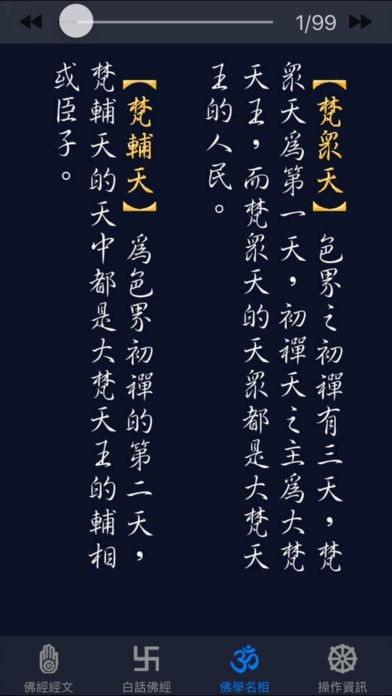 1
1/99
【梵眾天】色界之初禪有三天，梵
眾天為第一天，初禪天之主為大梵
天王，而梵眾天的天眾都是大梵天
王的人民。
【梵輔天】為色界初禪的第二天，
梵輔天的天中都是大梵天王的輔相
或臣子。
佛經經文
白話佛經
ॐ
佛學名相
操作資訊